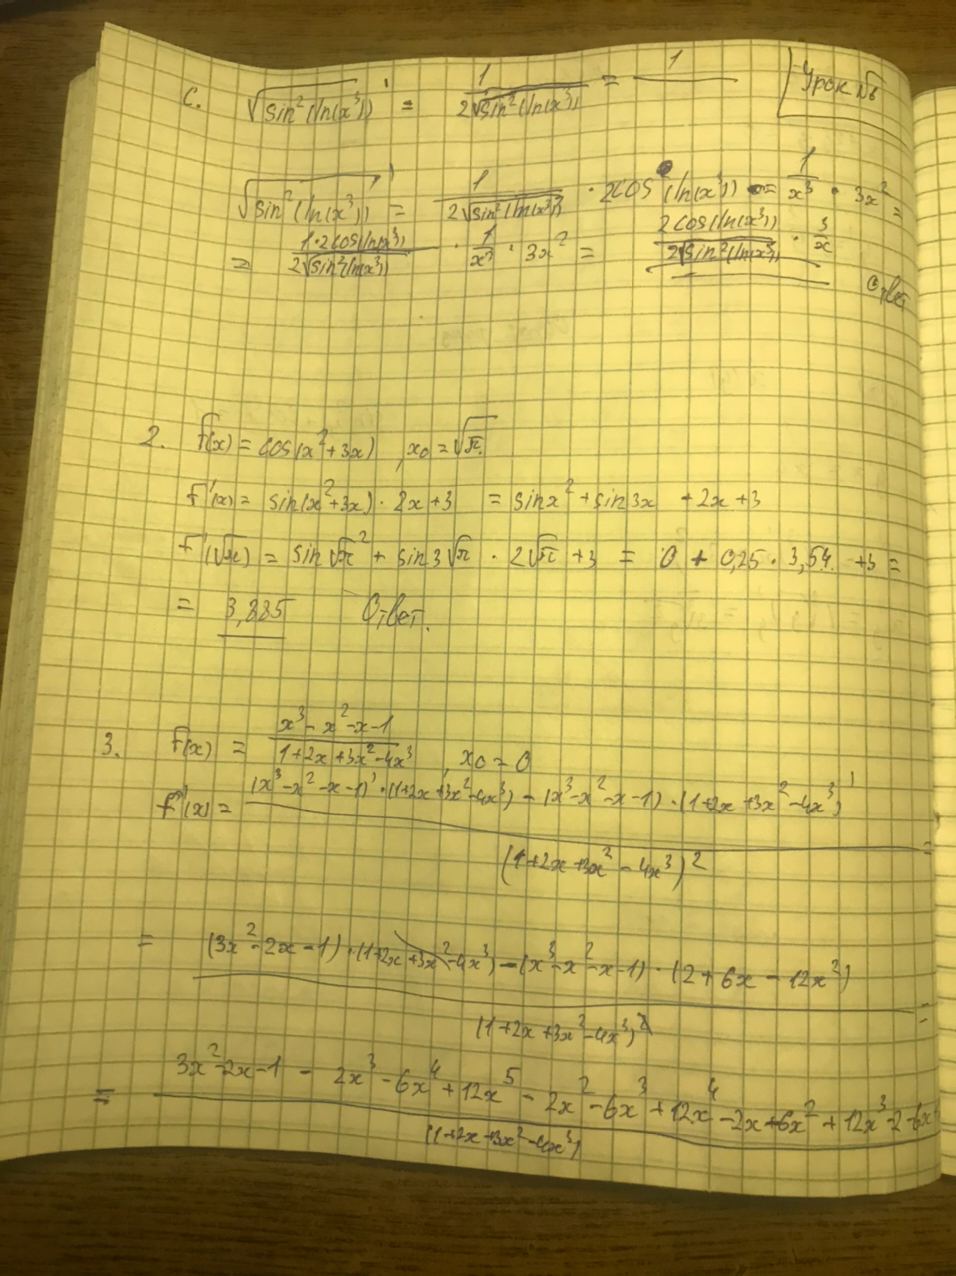 Урок №6
c. √(sin²(ln(x³)))' = 1/(2√(sin²(ln(x³)))) = 1/
√(sin²(ln(x³)))' = 1/(2√(sin²(ln(x³)))) · 2cos(ln(x³)) = 1/x³ · 3x² =
= (1·2cos(ln(x³)))/(2√(sin²(ln(x³)))) · 1/x³ · 3x² = (2cos(ln(x³)))/(2√(sin²(ln(x³)))) · 3/x
Ответ
2. f(x) = cos(x²+3x) , x₀ = √π.
f'(x) = sin(x²+3x) · 2x+3 = sinx² + sin3x + 2x+3
f'(√π) = sin√π² + sin3√π · 2√π + 3 = 0 + 0,25 · 3,54. +3 =
= 3,885 Ответ.
3. f(x) = (x³-x²-x-1)/(1+2x+3x²-4x³) , x₀=0
f'(x) = ((x³-x²-x-1)'·(1+2x+3x²-4x³) - (x³-x²-x-1)·(1+2x+3x²-4x³)')/(1+2x+3x²-4x³)² =
= ((3x²-2x-1)·(1+2x+3x²-4x³) - (x³-x²-x-1)·(2+6x-12x²))/(1+2x+3x²-4x³)² =
= (3x²-2x-1 - 2x³-6x⁴+12x⁵-2x²-6x³+12x⁴-2x+6x²+12x³-2-6x)/(1+2x+3x²-4x³)